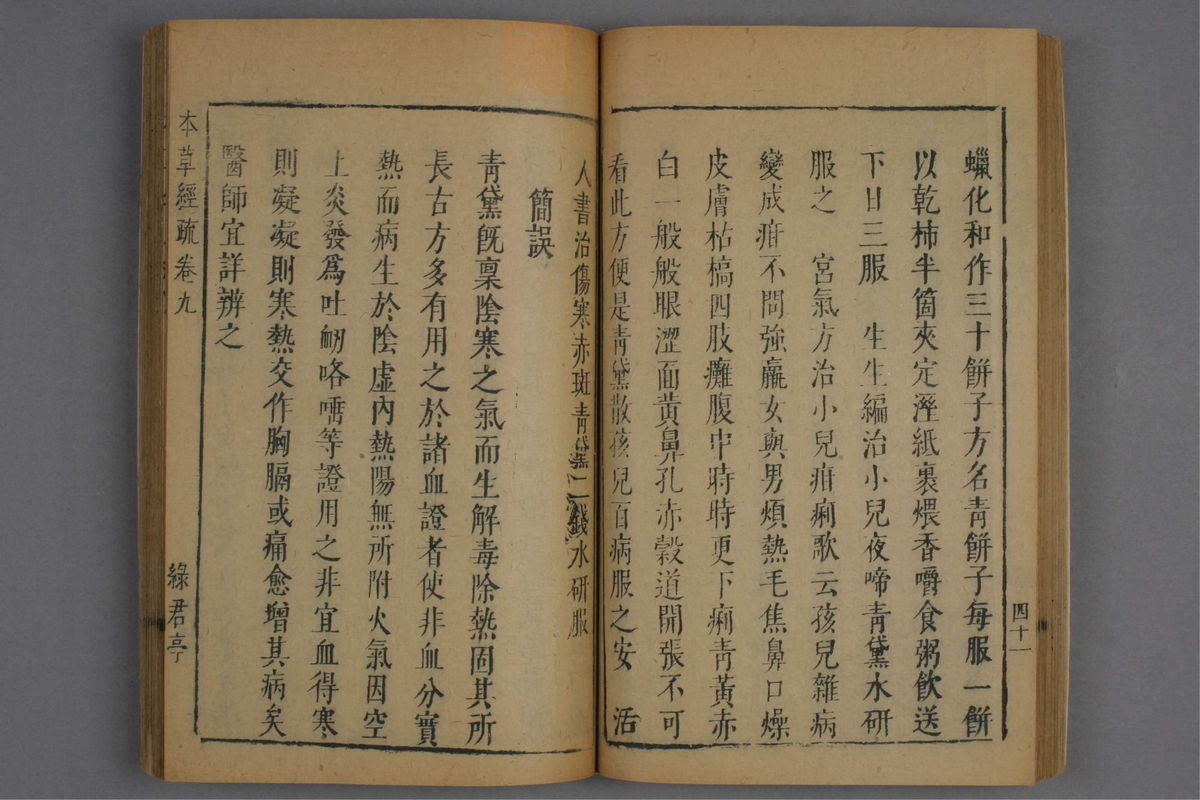 四十一
蠟化和作三十餅子方名青餅子每服一餅
以乾柿半箇夾定溼紙裹煨香嚼食粥飲送
下日三服　生生編治小兒夜啼青黛水研
服之　宮氣方治小兒疳痢歌云孩兒雜病
變成疳不問強羸女與男煩熱毛焦鼻口燥
皮膚枯槁四肢癱腹中時時更下痢青黃赤
白一般般眼澀面黃鼻孔赤穀道開張不可
看此方便是青黛散孩兒百病服之安　活
人書治傷寒赤斑青黛二錢水研服
簡誤
青黛既稟陰寒之氣而生解毒除熱固其所
長古方多有用之於諸血證者使非血分實
熱而病生於陰虛內熱陽無所附火氣因空
上炎發為吐衂咯唾等證用之非宜血得寒
則凝凝則寒熱交作胸膈或痛愈增其病矣
醫師宜詳辨之
本草經疏卷九
綠君亭